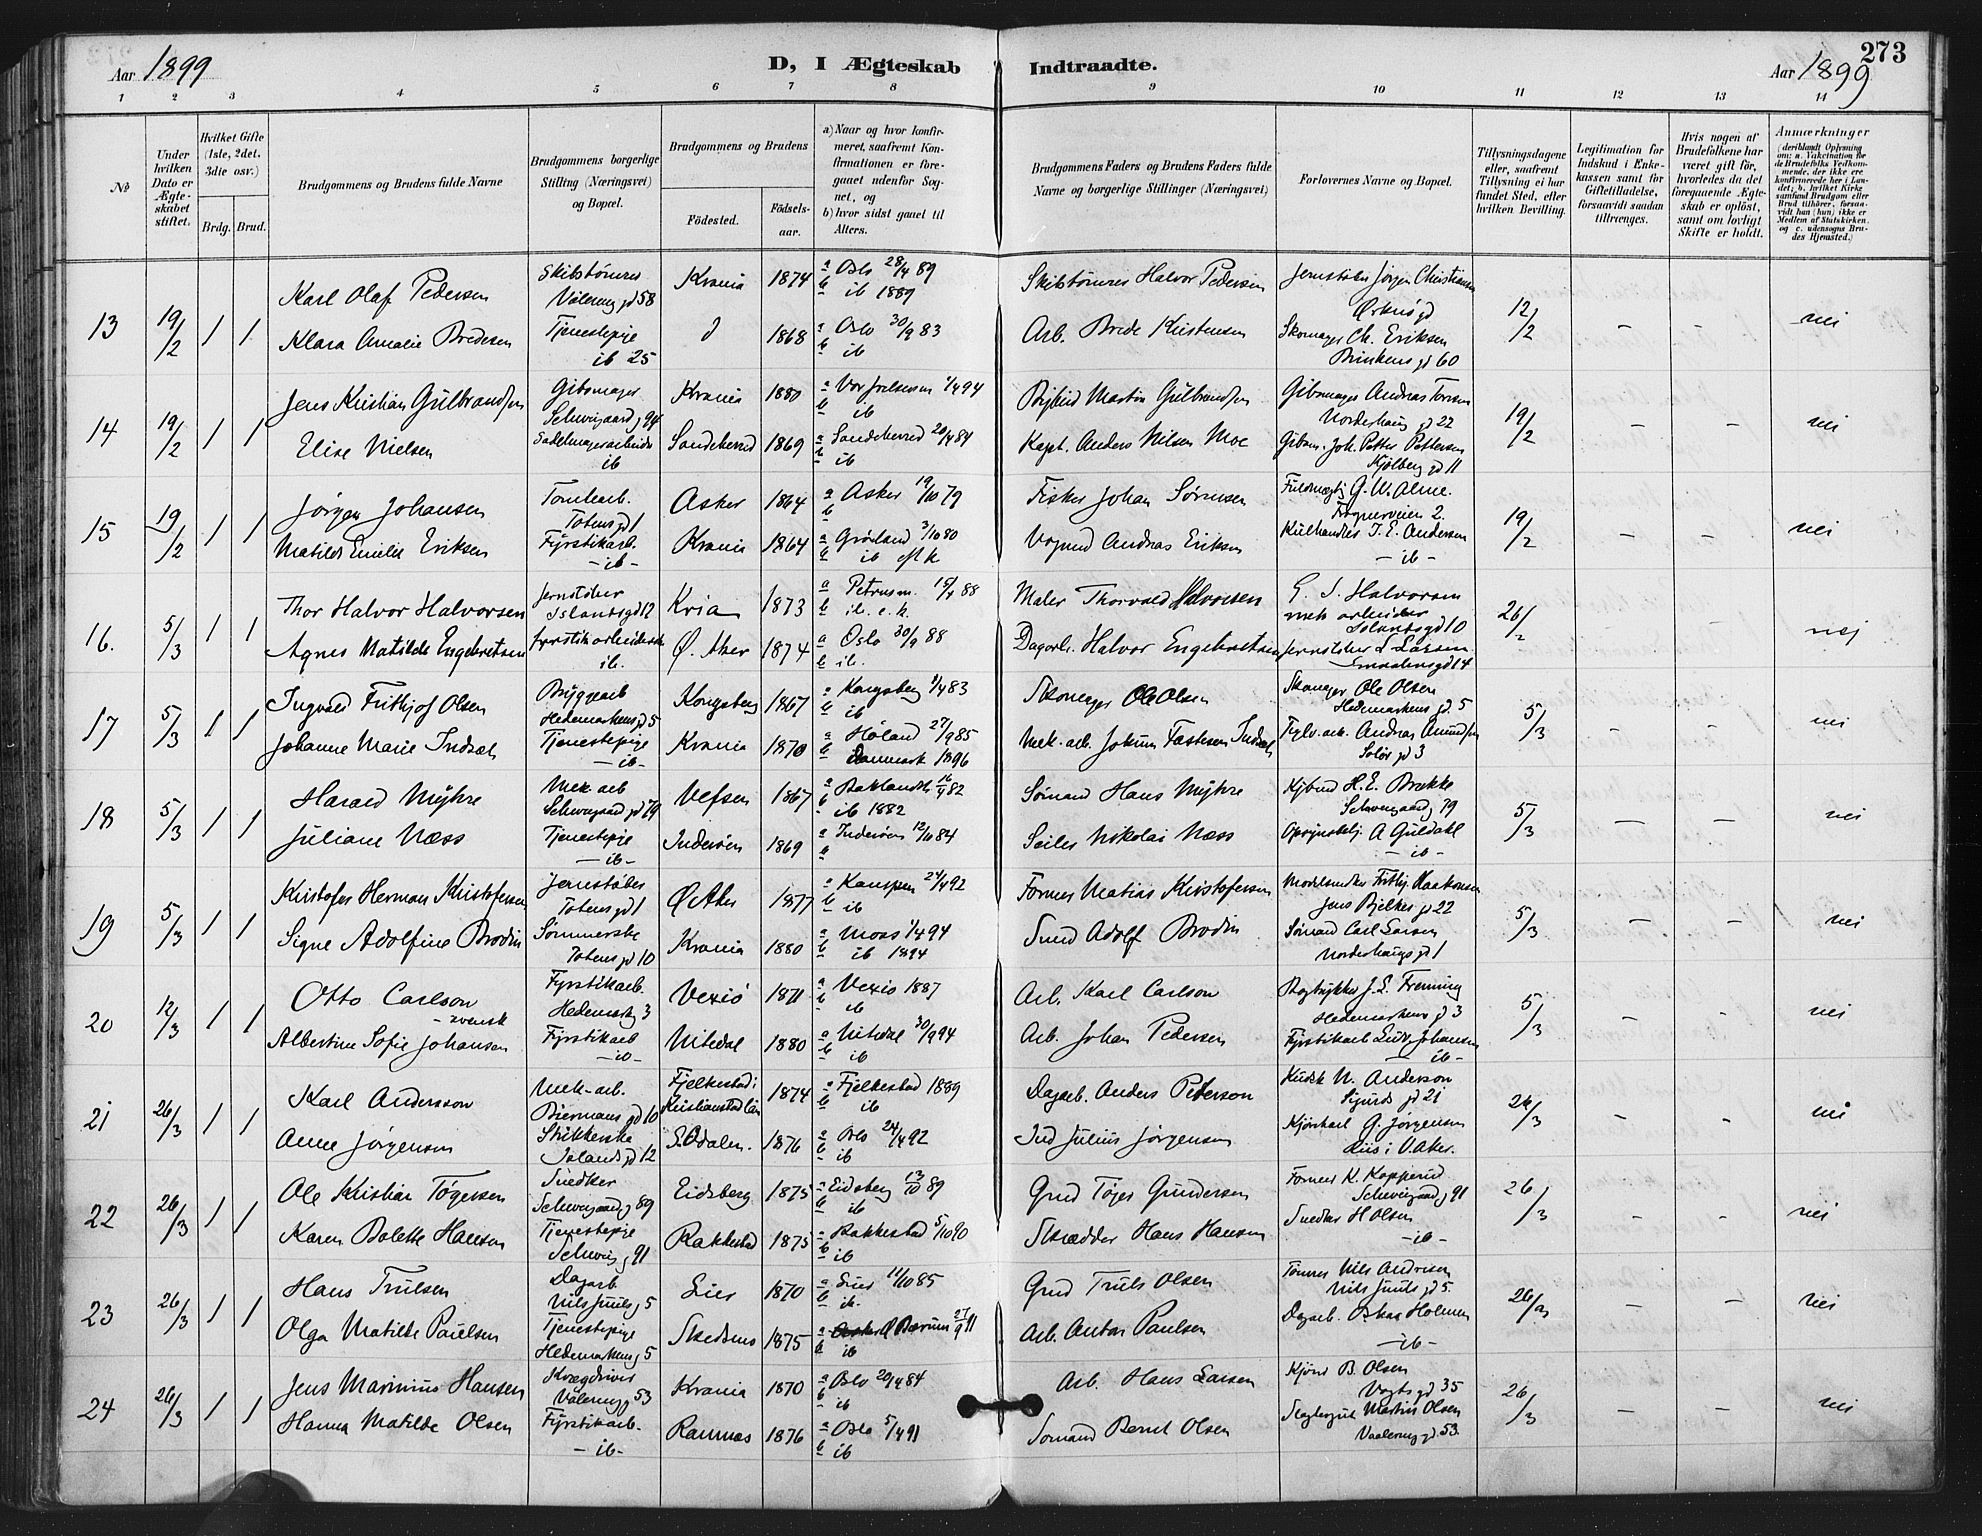 Aar 1899
D, I Ægteskab
Indtraadte.
Aar 1899
273
1 2 3 4 5 6 7 8 9 10 11 12 13 14
№
Under hvilken Dato er Ægteskabet stiftet.
Hvilket Gifte (1ste, 2det, 3die osv.)
Brdg. Brud.
Brudgommens og Brudens fulde Navne
Brudgommens borgerlige Stilling (Næringsvei) og Bopæl.
Brudgommens og Brudens
Födested.
Födselsaar.
a) Naar og hvor konfirmeret, saafremt Konfirmationen er foregaaet udenfor Sognet, og
b) hvor sidst gaaet til Alters.
Brudgommens Faders og Brudens Faders fulde Navne og borgerlige Stillinger (Næringsvei)
Forlovernes Navne og Bopæl.
Tillysningsdagene eller, saafremt Tillysning ei har fundet Sted, efter hvilken Bevilling.
Legitimation for Indskud i Enkekassen samt for Giftetilladelse, forsaavidt saadan tiltrænges.
Hvis nogen af Brudefolkene har været gift för, hvorledes da det foregaaende Ægteskab er oplöst, samt om lovligt Skifte er holdt.
Anmærkninger (deriblandt Oplysning om: a. Vakcination for de Brudefolks Vedkommende, der ikke ere konfirmerede her i Landet; b. hvilket Kirkesamfund Brudgom eller Brud tilhörer, forsaavidt han (hun) ikke er Medlem af Statskirken. og c. udensogns Brudes Hjemsted.)
13 19/2 1 1 Karl Olaf Pedersen Skibstömrer Vålereng gd 58 Krania 1874 a Oslo 28/4 89 Skibstömrer Halvor Pedersen Jernstöber Jörgen Christiansen 12/2 - - nei
b ib 1889
Klara Amalie Bredesen Tjenestepige ib 25 1868 a Oslo 30/9 83 Arb. Brede Kristensen Skomager Ch. Eriksen Brinkens gd 60
b ib
14 19/2 1 1 Jens Kristian Gulbrandsen Gibsmager Schweigaard g 94 Krania 1880 a Vor Frelsers 1/4 94 Martin Gulbrandsen Gibsmager Andreas Norderhaug gd 22 19/2 - - nei
b ib
Elise Nielsen Sadelmagerarbeider ib Sandeherred 1869 a Sandeherred 20/4 84 Kapt. Anders Nilsen Moe Gibsm. Joh. Petter Pettersen Kjölberg gd 11
b ib
15 19/2 1 1 Jörgen Johansen Tomtearb. Totens gd 1 Asker 1864 a Asker 19/10 79 Fisker Johan Sörensen Fuldmægtig G. W. Alme. Frognerveien 2. 19/2 - - nei
b
Matilde Emilie Eriksen Fyrstikarb. - ib - Krania 1864 a Grönland 3/10 80 Vognmd Andreas Eriksen Kulhandler T. E. Andersen - ib -
b ib
16. 5/3 1 1 Thor Halvor Halvorsen Jernstöber Islandsgd 12 Kria 1873 a Petrusm. 15/4 88 Maler Thorvald Halvorsen G. J. Halvorsen mek arbeider Islandsgd 10 26/2 - nej
b ib.
Agnes Matilde Engebretsen fyrstikarbeiderske ib. Ö. Aker 1874 a Oslo 30/9 88 Dagarb. Halvor Engebretsen Jernstöber L Larsen Smaalensgd 14
b ib.
17 5/3 1 1 Ingvald Frithjof Olsen Bryggearb Hedemarkens gd 5 Kongsberg 1867 a Kongsberg 1/4 83 Skomager Ole Olsen Skomager Ole Olsen Hedemarkens gd. 5 5/3 - - nei
b ib
Johanne Marie Indsæt Tjenestepige - ib - Krania 1870 a Höland 27/9 85 Mek. arb. Indsæt Andreas Amundsen Solör gd 3
b Danmark 1896
18 5/3 1 1 Harald Myhre Mek arb Schweigaard gd 79 Vefsen 1867 a Baklandt 16/4 82 Sömand Hans Myhre H. E. Brække Schweigaard g 79 5/3 - - nei
b ib 1882
Juliane Næss Tjenestepige - ib - Inderöen 1869 a Inderöen 12/10 84 Seiler Nikolai Næss A Guldahl - ib -
b
19 5/3 1 1 Kristofer Herman Kristofersen Jernstöber Totens gd 1 Ö Aker 1877 a Kampen 24/4 92 Former Matias Kristofersen Modelsnedker Frithj. Haakonsen Jens Bjelkes gd 22 5/3 - - nei
b ib
Signe Adolfine Brodin Sömmerske Totens gd 10 Krania 1880 a Moss 1/4 94 Smed Adolf Brodin Sömand Carl Larsen Norderhaugs gd 1
b ib 1894
20 12/3 1 1 Otto Carlson - svensk Fyrstikarb. Hedemark g 3 Vexiö 1871 a Vexiö 1887 Arb. Karl Carlson Bogtrykker J. E. Hedemarkens gd 3 5/3 - - nei
b ib
Albertine Sofie Johansen Fyrstikarb - ib - Nitedal 1880 a Nitedal 30/9 94 Arb. Johan Pedersen Fyrstikarb Ludv. Johansen - ib -
b ib
21 26/3 1 1 Karl Andersson Mek-arb. Biermans gd 10 Fjelkestad i Kristianstad län 1874 a Fjelkestad 1889 Dagarb. Anders Peterson Kudsk N. Anderson Sigurds gd 21 26/3 - - nei
b ib
Anne Jörgensen Strikkerske Islands gd 12 S. Odalen. 1876 a Oslo 24/4 92 Ind Julius Jörgensen Kjörekarl G. Jörgensen Riis i V. Aker.
b ib
22 26/3 1 1 Ole Kristian Tögersen Snedker Schweigaard g 89 Eidsberg 1875 a Eidsberg 13/10 89 Grd Töger Gundersen Former K. Kopperud Schweigaard g 91 26/3 - - nei
b ib
Karen Bolette Hansen Tjenestepige Schweig g 91 Rakkestad 1875 a Rakkestad 5/10 90 Skrædder Hans Hansen Snedker H Olsen - ib -
b ib
23 26/3 1 1 Hans Trulsen Dagarb Nils Juuls g 5 Lier 1870 a Lier 11/10 85 Grd Truls Olsen Tömrer Nils Andresen Nils Juuls gd 5. 26/3 - - nei
b ib.
Olga Matilde Paulsen Tjenestepige Hedemarkens g 5 Skedsmo 1875 a Bærum 27/9 Arb. Anton Paulsen Dagarb. Oskar Holmen - ib -
b ib
24 26/3 1 1 Jens Marinius Hansen Kvægdriver Välereng g 53 Krania 1870 a Oslo 20/4 84 Arb. Hans Larsen B. Olsen Vogts gd 35 26/3 - - nei
b ib
Hanna Matilde Olsen Fyrstikarb. - ib - Ramnæs 1876 a Oslo 5/4 91 Sömand Bernt Olsen Martin Olsen Vaalereng gd. 53
b ib